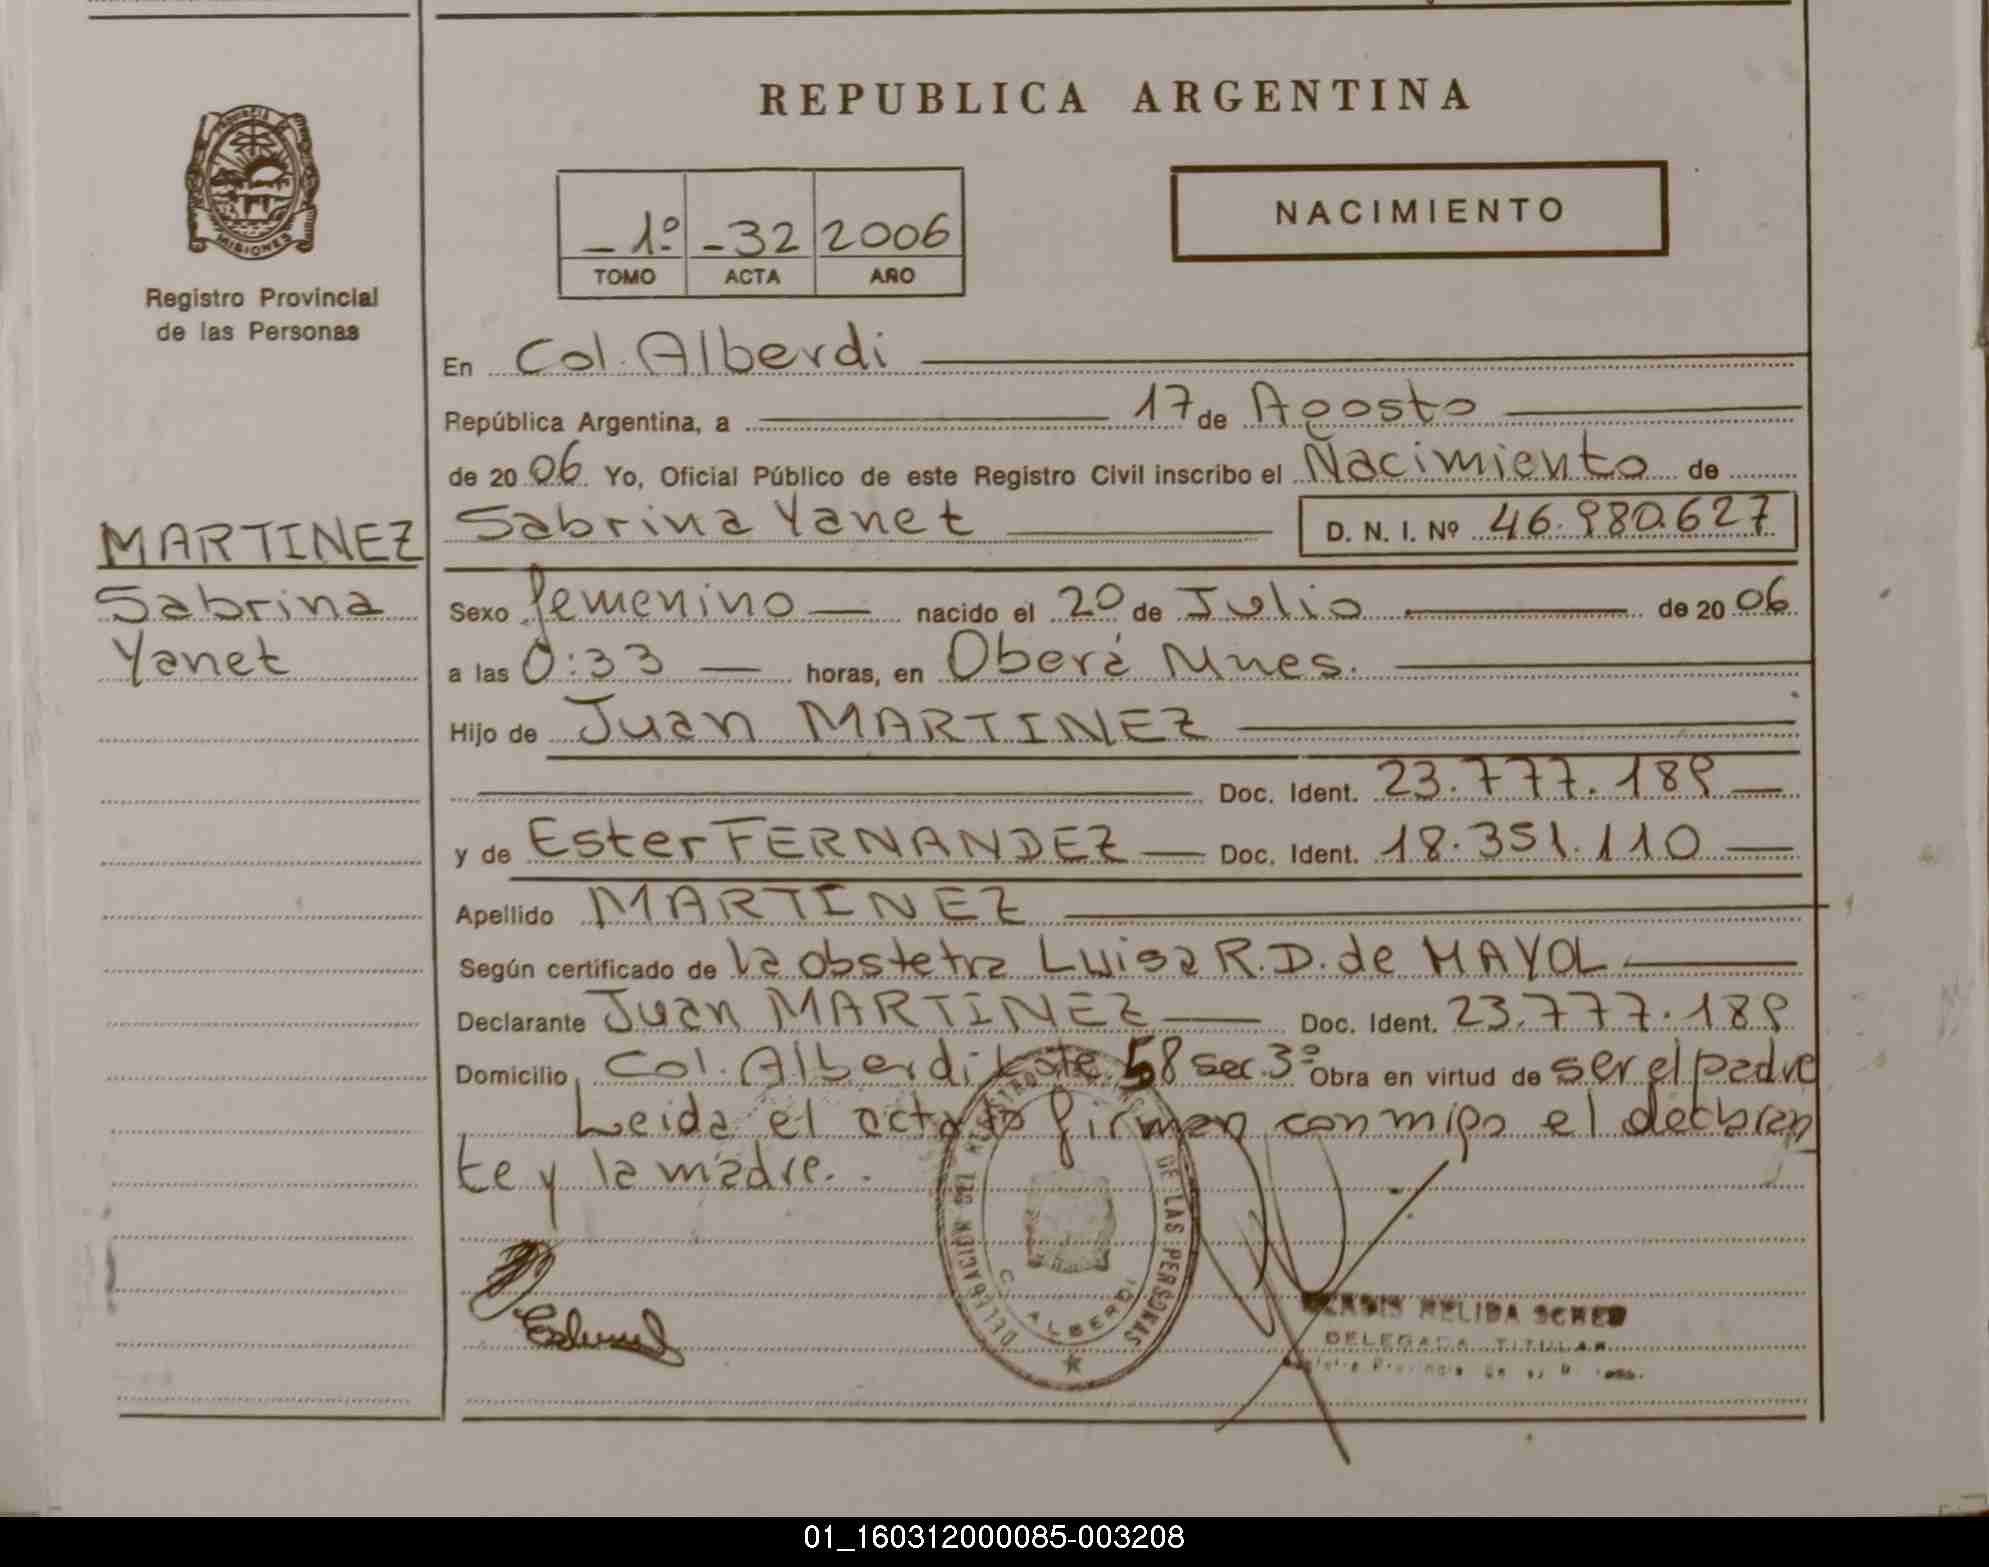 REPUBLICA ARGENTINA
PROVINCIA DE
MISIONES
Registro Provincial
de las Personas
NACIMIENTO
- 1º - 32 2006
TOMO ACTA AÑO
En Col. Alberdi
República Argentina, a 17 de Agosto
de 20 06. Yo, Oficial Público de este Registro Civil inscribo el Nacimiento de
Sabrina Yanet D. N. I. Nº 46.980.627
MARTINEZ
Sabrina
Yanet
Sexo femenino nacido el 20 de Julio de 20 06
a las 0:33 horas, en Oberá Mnes.
Hijo de Juan MARTINEZ
Doc. Ident. 23.777.189
y de Ester FERNANDEZ Doc. Ident. 18.351.110
Apellido MARTINEZ
Según certificado de la obstetra Luisa R. D. de MAYOL
Declarante Juan MARTINEZ Doc. Ident. 23.777.189
Domicilio Col. Alberdi Lote 58 sec. 3º Obra en virtud de ser el padre
Leida el acta la firman conmigo el declaran
te y la madre.
DELEGACION DEL REGISTRO DE LAS PERSONAS
C. ALBERDI
NELIDA
DELEGADA TITULAR
01_160312000085-003208